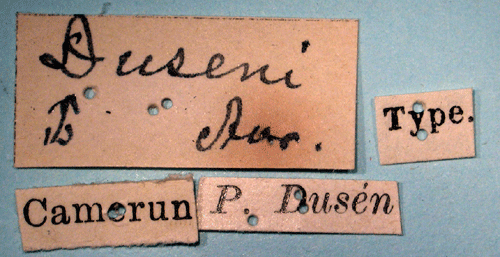 Duseni
Aur.
Type.
Camerun
P. Dusén